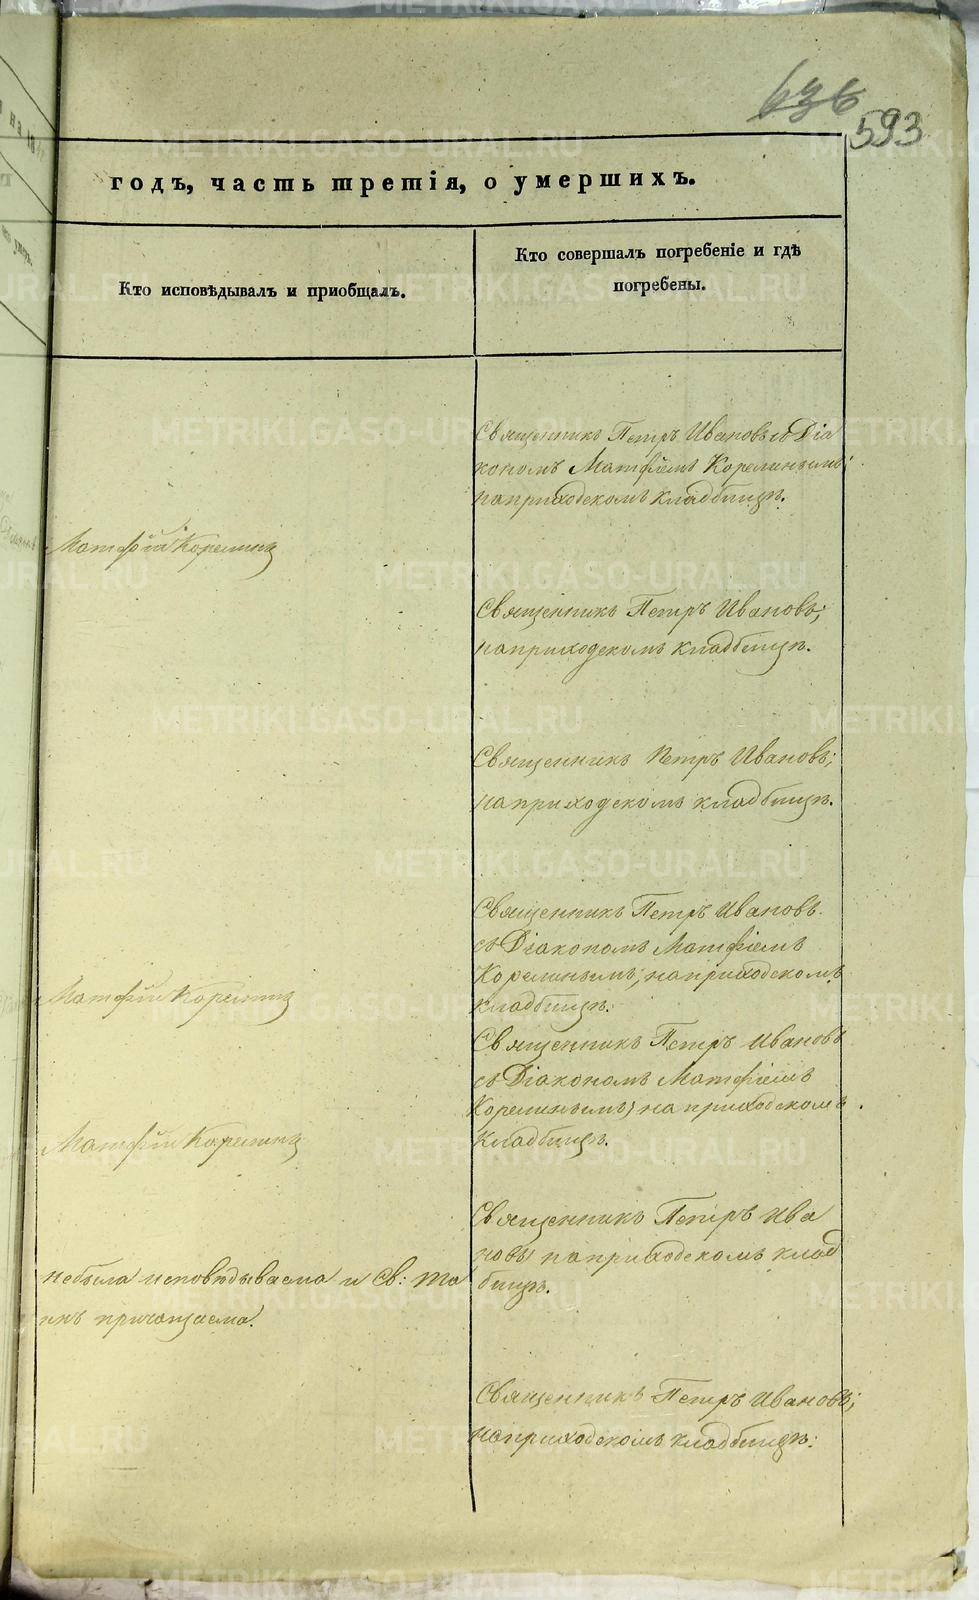 636
593
годъ, часть третія, о умершихъ.
Кто исповѣдывалъ и приобщалъ.
Кто совершалъ погребеніе и гдѣ
погребены.
Священникъ Петръ Ивановъ съ Діа
кономъ Матфіемъ Корелинымъ;
на приходскомъ кладбищѣ.
Матфій Корелинъ
Священникъ Петръ Ивановъ;
на приходскомъ кладбищѣ.
Священникъ Петръ Ивановъ;
на приходскомъ кладбищѣ.
Священникъ Петръ Ивановъ
съ Діакономъ Матфіемъ
Корелинымъ; на приходскомъ
кладбищѣ.
Матфій Корелинъ
Священникъ Петръ Ивановъ
съ Діакономъ Матфіемъ
Корелинымъ; на приходскомъ
кладбищѣ.
Матфій Корелинъ
Священникъ Петръ Ива
новъ; на приходскомъ клад
бищѣ.
не была исповѣдываема и Св: Та
инъ причащаема.
Священникъ Петръ Ивановъ;
на приходскомъ кладбищѣ.
METRIKI.GASO-URAL.RU